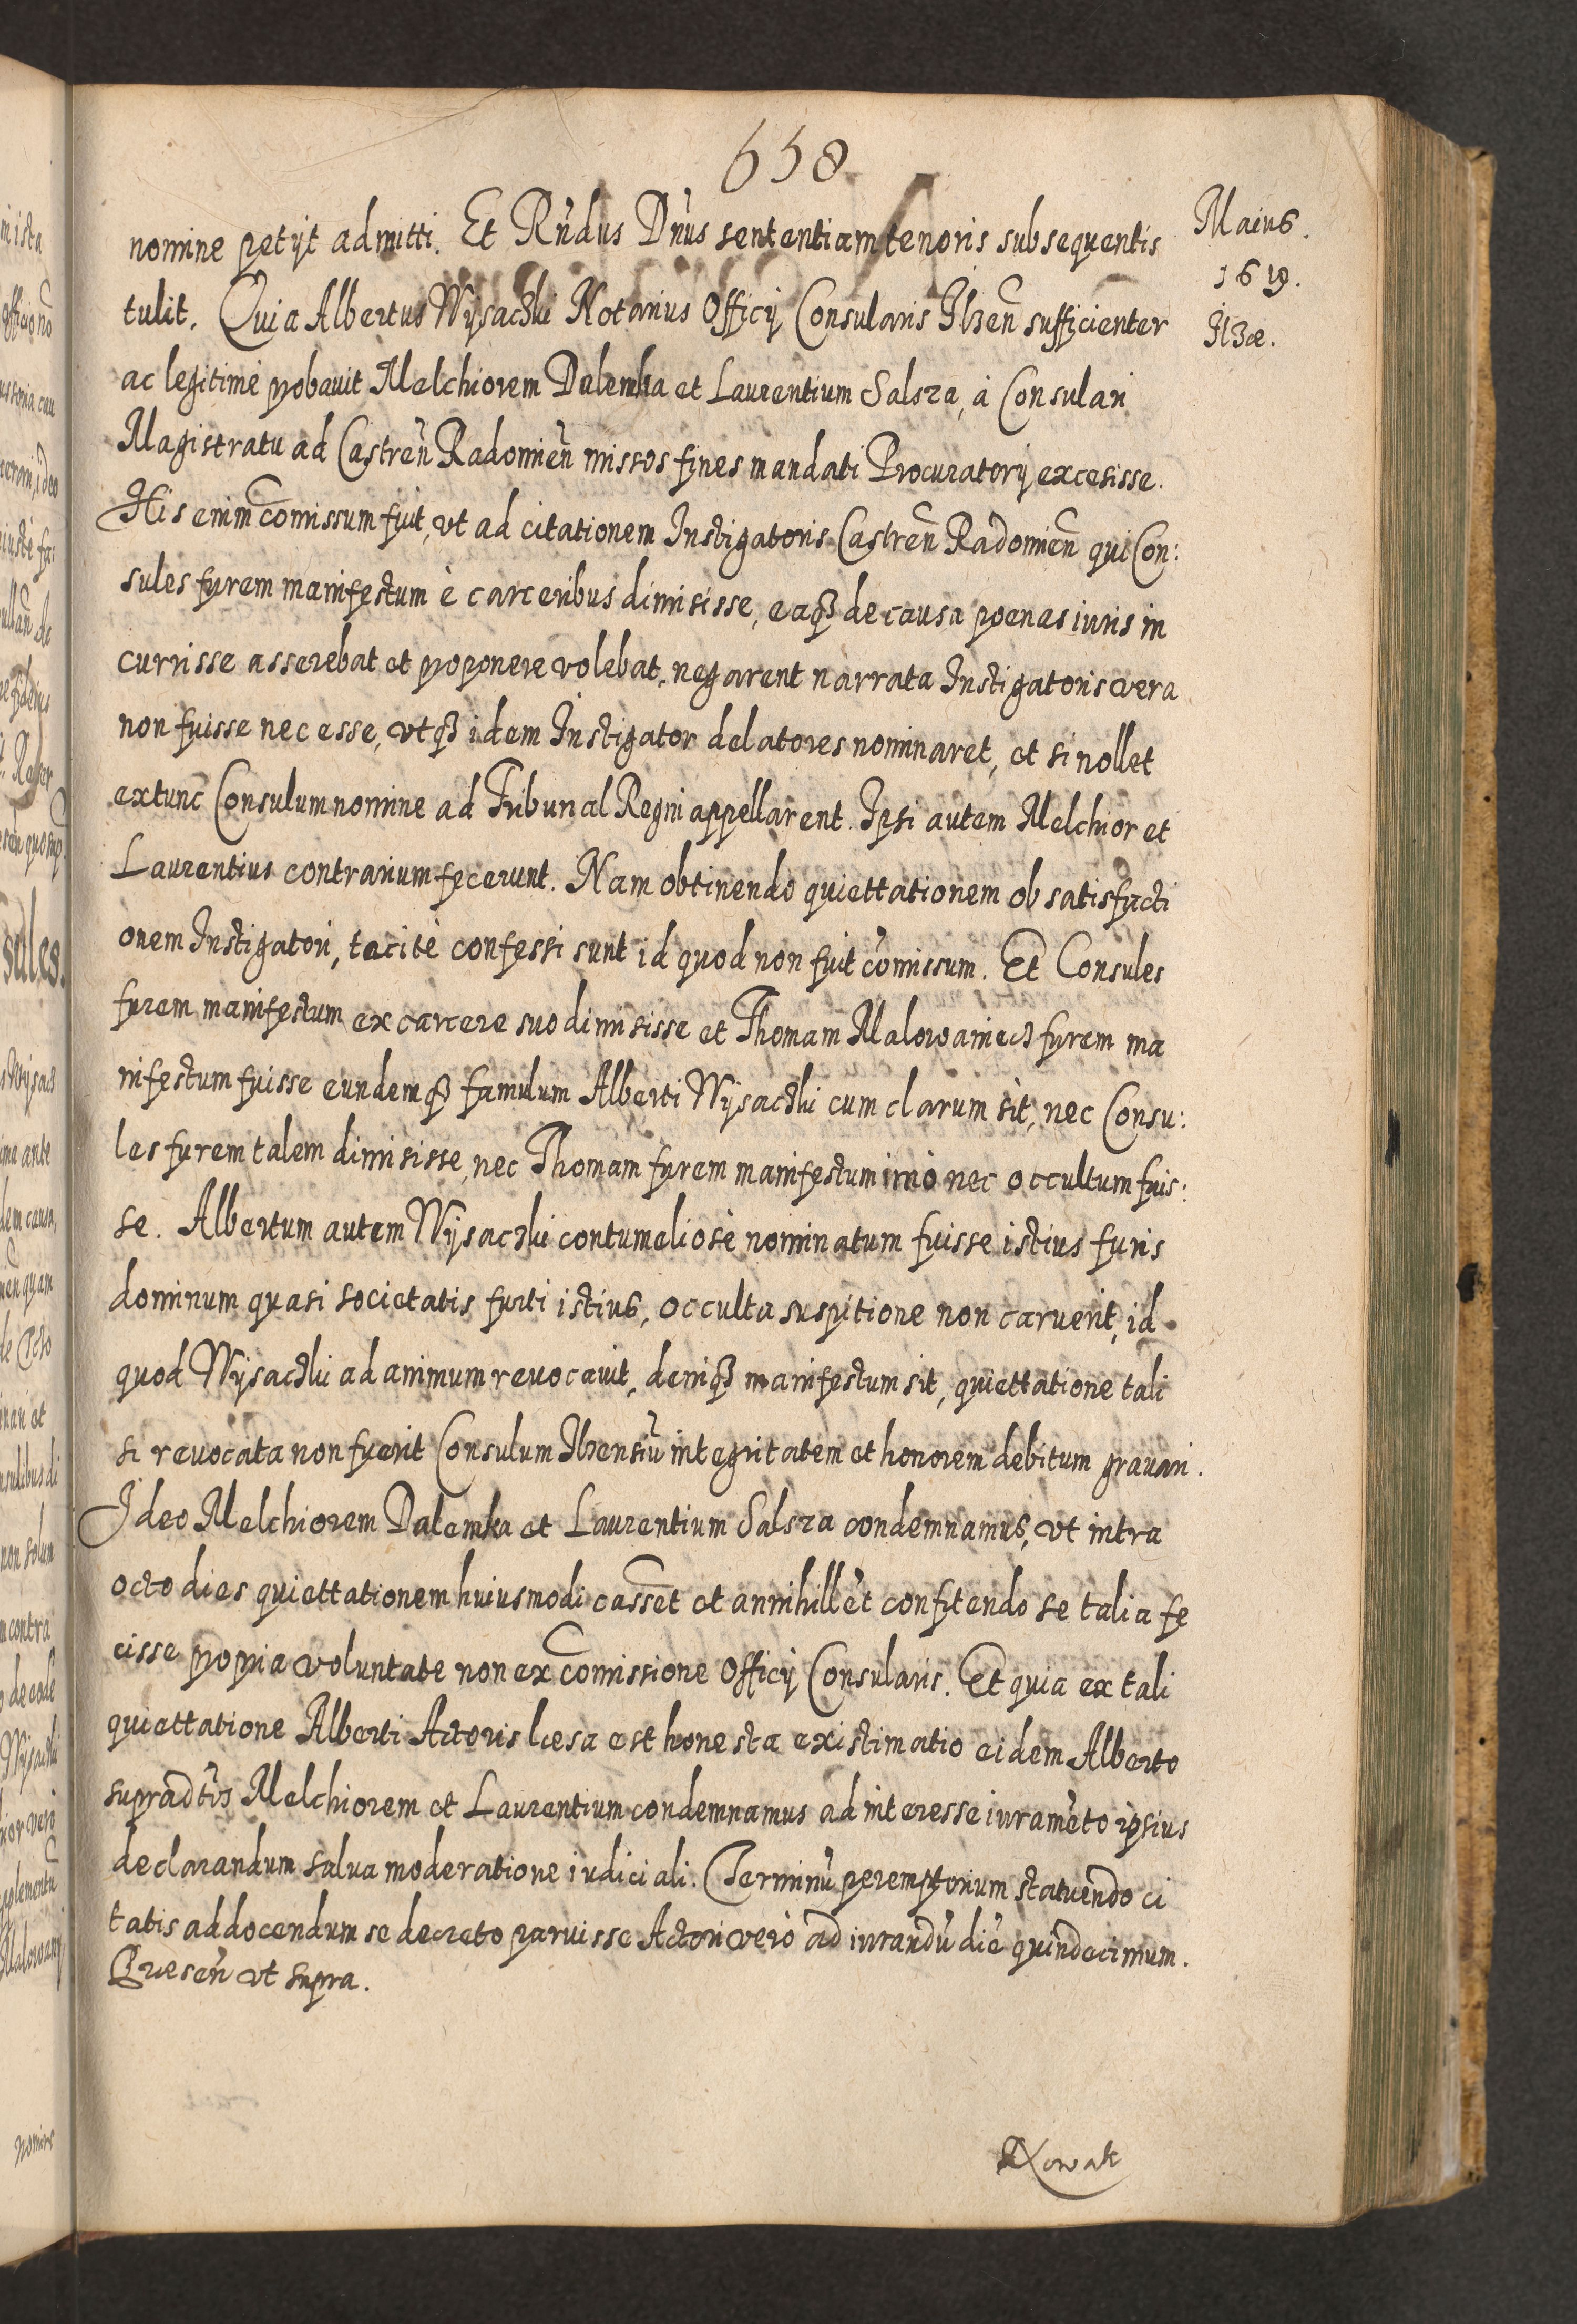 658
nomine petijt admitti. Et Rndus Dnus sententiam tenoris subsequentis
Maius.
1619.
Ilzæ.
tulit. Quia Albertus Wysaczki Notarius Officij Consularis Ilzen̄ sufficienter
ac legitimè probauit Melchiorem Dalemka et Laurentium Salsza, à Consulari
Magistratu ad Castren̄ Radomien̄ missos fines mandati Procuratorij excesisse.
His enim com̄issum fuit, vt ad citationem Instigatoris Castren̄ Radomien̄ qui Con:
sules furem manifestum è carceribus dimisisse, eaqȝ de causa poenas iuris in
currisse asserebat et proponere volebat, negarent narrata Instigatoris vera
non fuisse nec esse, vtqȝ idem Instigator delatores nominaret, et si nollet
extunc Consulum nomine ad Tribunal Regni appellarent. Ipsi autem Melchior et
Laurentius contrarium fecerunt. Nam obtinendo quiettationem ob satisfacti
onem Instigatori, tacitè confessi sunt id quod non fuit com̄issum. Et Consules
furem manifestum ex carcere suo dimisisse et Thomam Malowaniecz furem ma
nifestum fuisse eundemqȝ famulum Alberti Wysaczki cum clarum sit, nec Consu:
les furem talem dimisisse, nec Thomam furem manifestum imò nec occultum fuis:
se. Albertum autem Wysaczki contumeliosè nominatum fuisse istius furis
dominum quasi societatis furti istius, occulta suspitione non caruerit, id
quod Wysaczki ad animum reuocauit, deniqȝ manifestum sit, quiettatione tali
si reuocata non fuerit Consulum Ilzensiū integritatem et honorem debitum grauari.
Ideo Melchiorem Dalemka et Laurentium Salsza condemnamus, vt intra
octo dies quiettationem huiusmodi cassēt et annihillēt confitendo se talia fe
cisse propria voluntate non ex com̄issione Officij Consularis. Et quia ex tali
quiettatione Alberti Actoris læsa est honesta existimatio eidem Alberto
supradtūs Melchiorem et Laurentium condemnamus ad interesse iuramēto ipsius
declarandum salua moderatione iudiciali. Terminū peremptorium statuendo ci
tatis ad docendum se decreto paruisse Actori verò ad iurandū diē quindecimum.
Præsen̄ vt supra.
Nowak